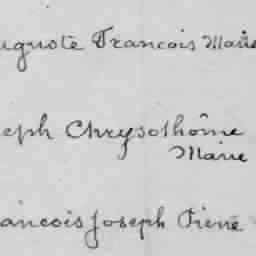 uguste Francois Marie
eph Chrysothôme
Marie
ancois Joseph Pierre